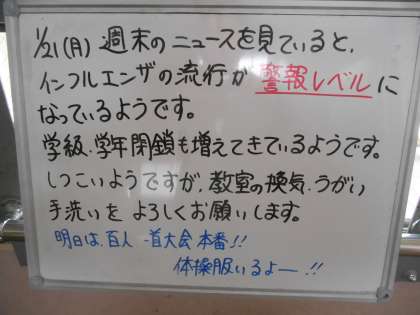 1/21(月) 週末のニュースを見ていると、
インフルエンザの流行が 警報レベル に
なっているようです。
学級、学年閉鎖も増えてきているようです。
しつこいようですが、教室の換気、うがい
手洗いを よろしくお願いします。
明日は、百人一首大会 本番!!
体操服いるよー!!